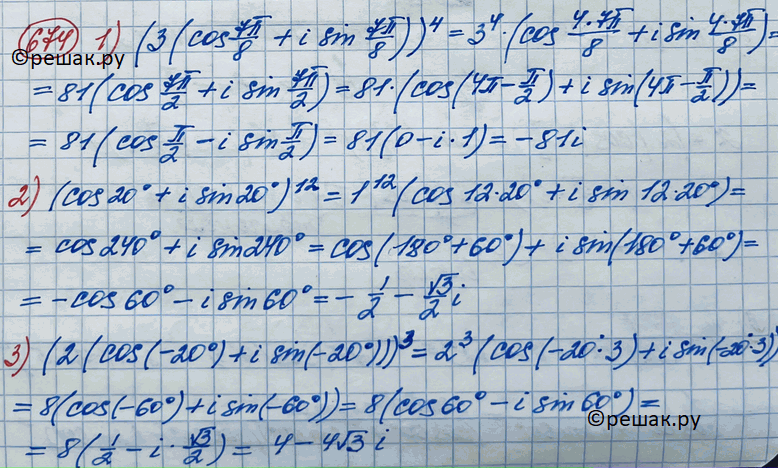 674 1) (3(cos 7π/8 + i sin 7π/8))⁴ = 3⁴·(cos 4·7π/8 + i sin 4·7π/8) =
©решак.ру
= 81(cos 7π/2 + i sin 7π/2) = 81·(cos(4π-π/2) + i sin(4π-π/2)) =
= 81(cos π/2 - i sin π/2) = 81(0 - i·1) = -81i
2) (cos 20° + i sin 20°)¹² = 1¹²(cos 12·20° + i sin 12·20°) =
= cos 240° + i sin 240° = cos(180°+60°) + i sin(180°+60°) =
= -cos 60° - i sin 60° = - 1/2 - √3/2 i
3) (2(cos(-20°) + i sin(-20°)))³ = 2³(cos(-20°·3) + i sin(-20°·3))
= 8(cos(-60°) + i sin(-60°)) = 8(cos 60° - i sin 60°) =
©решак.ру
= 8(1/2 - i·√3/2) = 4 - 4√3 i